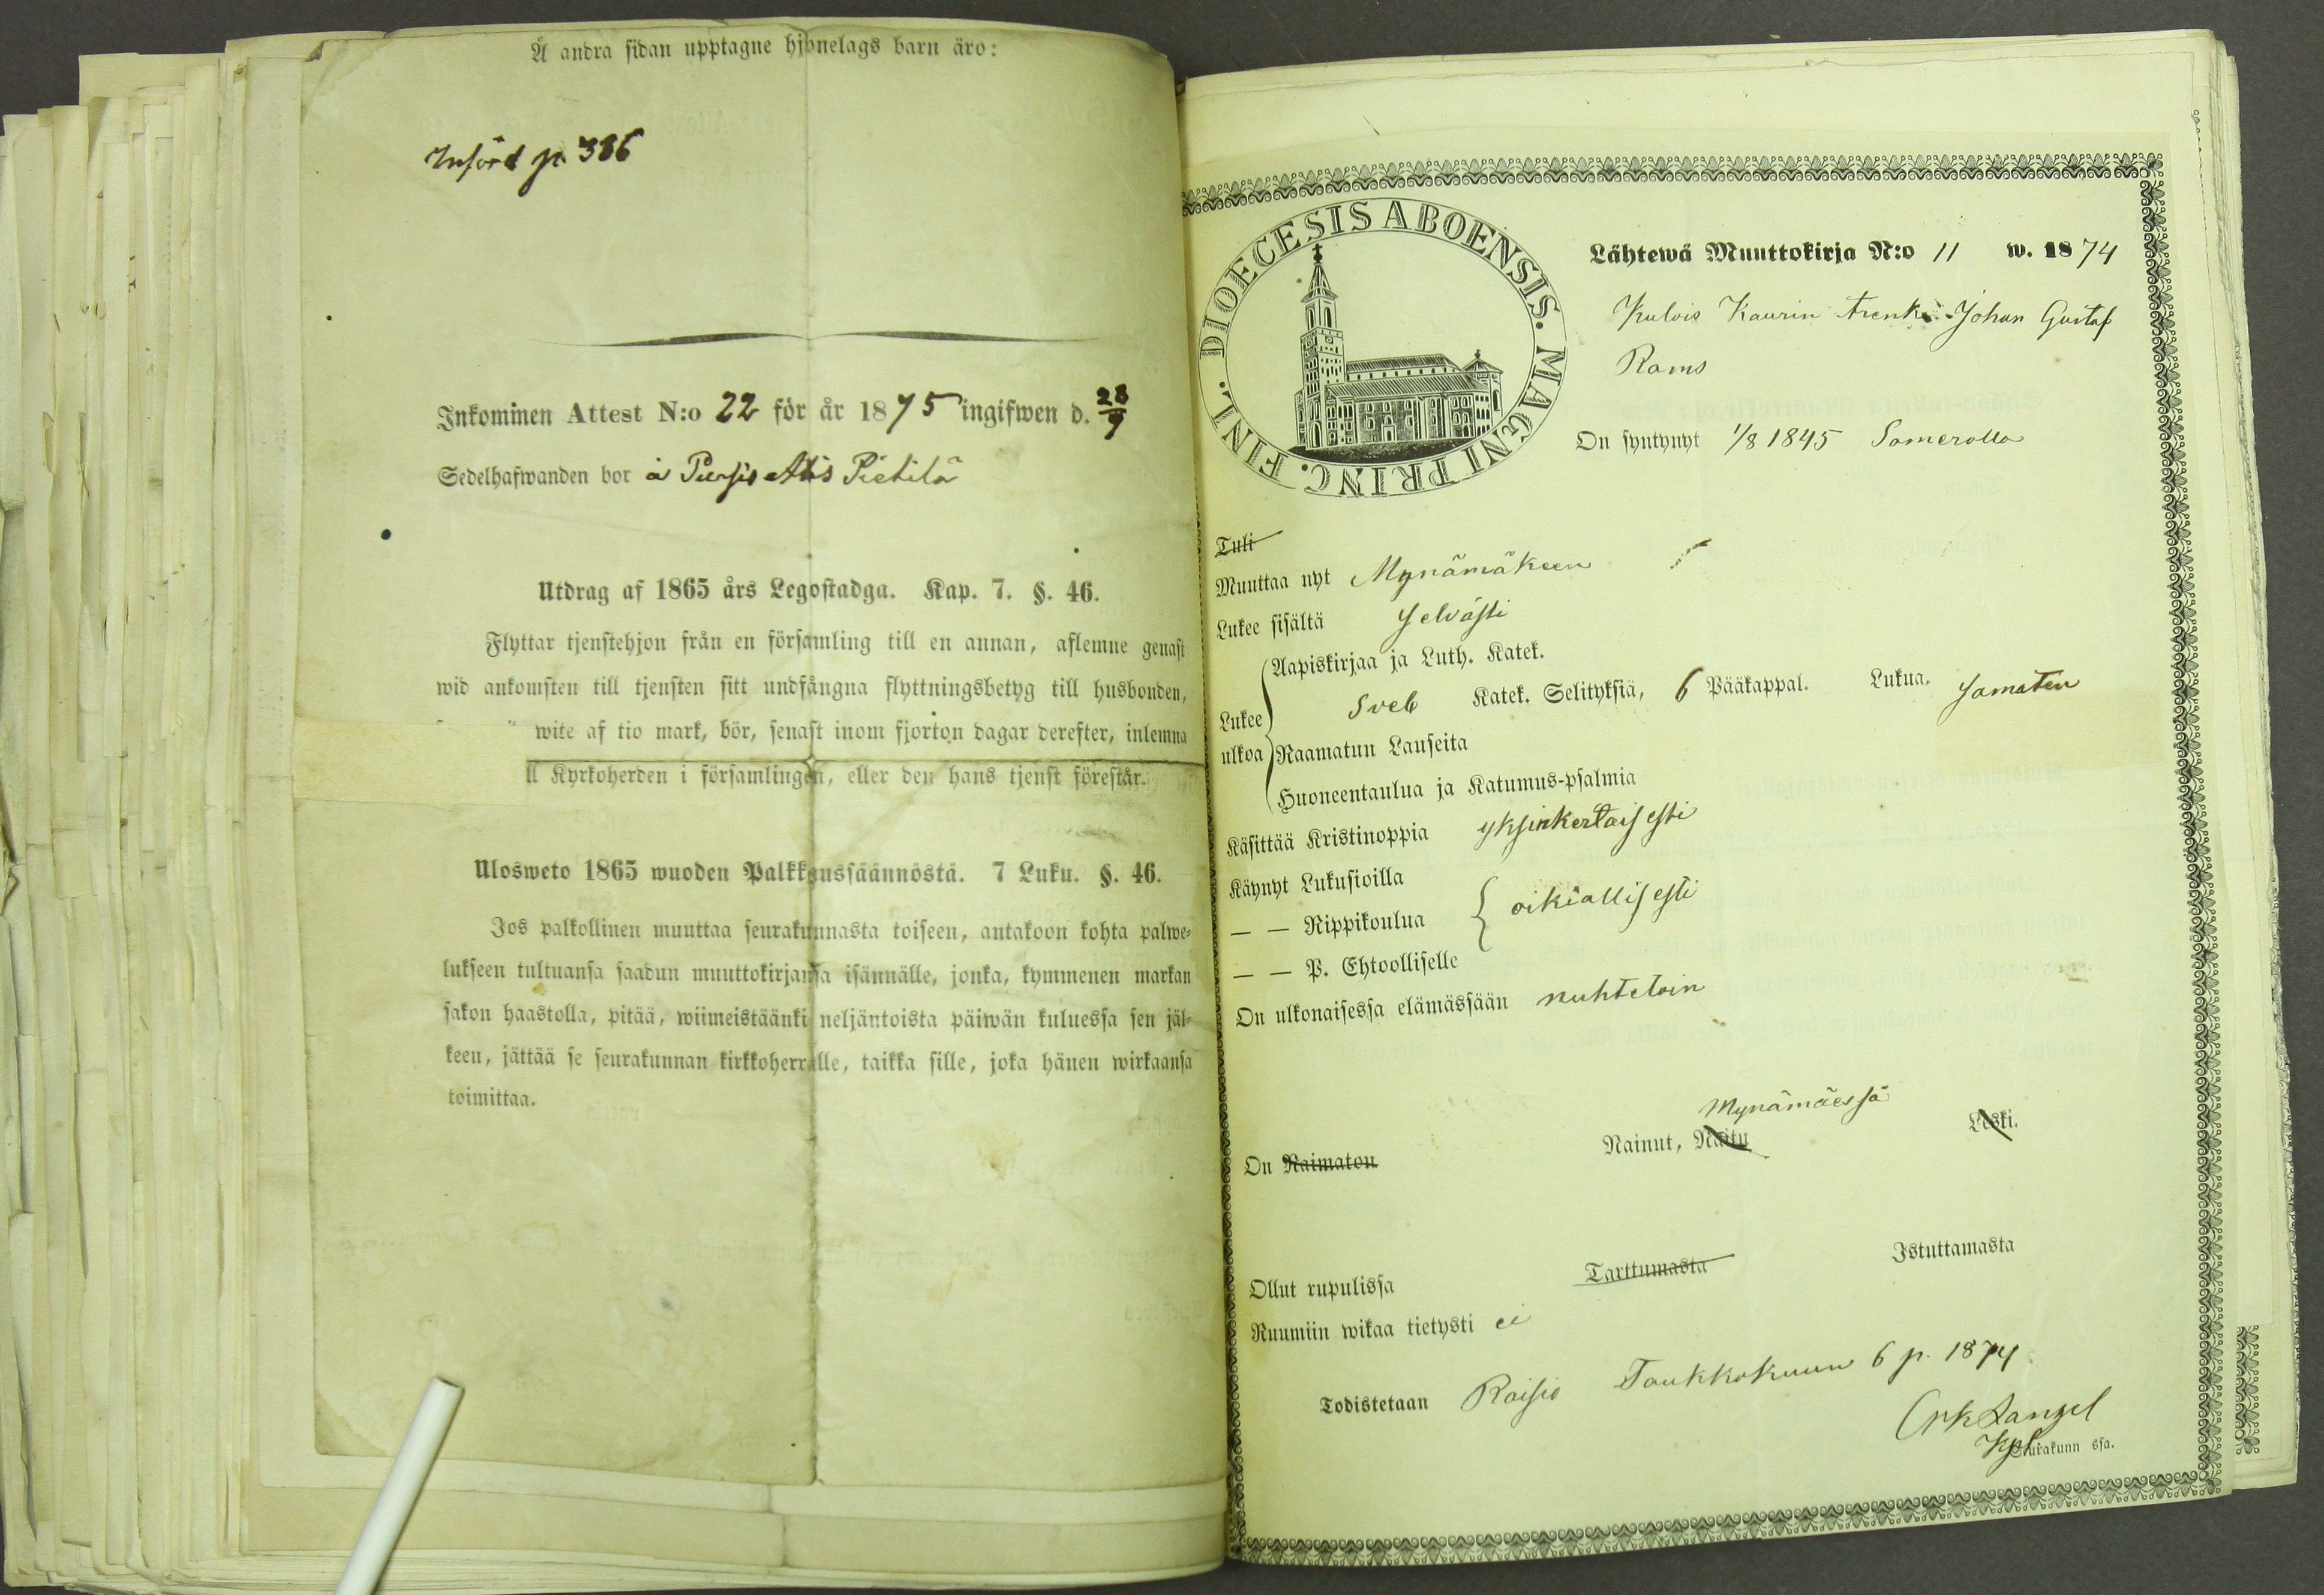 Å andra sidan upptagne hjonelags barn äro:
Införd p. 386
Inkommen Attest N:o 22 för år 1875 ingifwen d. 28/9
Sedelhafwanden bor å Pietilä
Utdrag af 1865 års Legostadga. Kap. 7. §. 46.
Flyttar tjenstehjon från en församling till en annan, aflemne genast
wid ankomsten till tjensten sitt undfångna flyttningsbetyg till husbonden,
wite af tio mark, bör, senast inom fjorton dagar derefter, inlemna
ll Kyrkoherden i församlingen, eller den hans tjenst förestår.
Ulosweto 1865 wuoden Palkkaussäännöstä. 7 Luku. §. 46.
Jos palkollinen muuttaa seurakunnasta toiseen, antakoon kohta palwe-
lukseen tultuansa saadun muuttokirjansa isännälle, jonka, kymmenen markan
sakon haastolla, pitää, wiimeistäänki neljäntoista päiwän kuluessa sen jäl-
keen, jättää se seurakunnan kirkkoherralle, taikka sille, joka hänen wirkaansa
toimittaa.
DIOECESIS ABOENSIS. MAGNI PRINC. FINL.
Lähtewä Muuttokirja N:o 11 w. 1874
Kulois Kaurin trenki Johan Gustaf
Rams
On syntynyt 1/8 1845 Somerolla
Tuli
Muuttaa nyt Mynämäkeen
Lukee sisältä selvästi
Lukee ulkoa
Aapiskirjaa ja Luth. Katek.
Sveb Katek. Selityksiä, 6 Pääkappal. Lukua. samaten
Raamatun Lauseita
Huoneentaulua ja Katumus-psalmia
Käsittää Kristinoppia yksinkertaisesti
Käynyt Lukusioilla
— — Rippikoulua oikiallisesti
— — P. Ehtoolliselle
On ulkonaisessa elämässään nuhtetoin
Mynämäessä
On Naimaton Nainut, Naitu Leski.
Ollut rupulissa Tarttumasta Istuttamasta
Ruumiin wikaa tietysti ei
Todistetaan Raisio Toukkokuun 6 p. 1874
Kpl.
Seurakunn ssa.